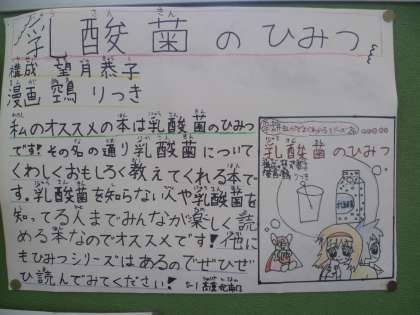 乳酸菌のひみつ
構成 望月恭子
漫画 鶏 りつき
私のオススメの本は乳酸菌のひみつ
です!その名の通り乳酸菌について
くわしくおもしろく教えてくれる本で
す。乳酸菌を知らない人や乳酸菌を
知ってる人までみんなが楽しく読
める本なのでオススメです!他に
もひみつシリーズはあるのでぜひぜ
ひ読んでみてください!
乳酸菌のひみつ